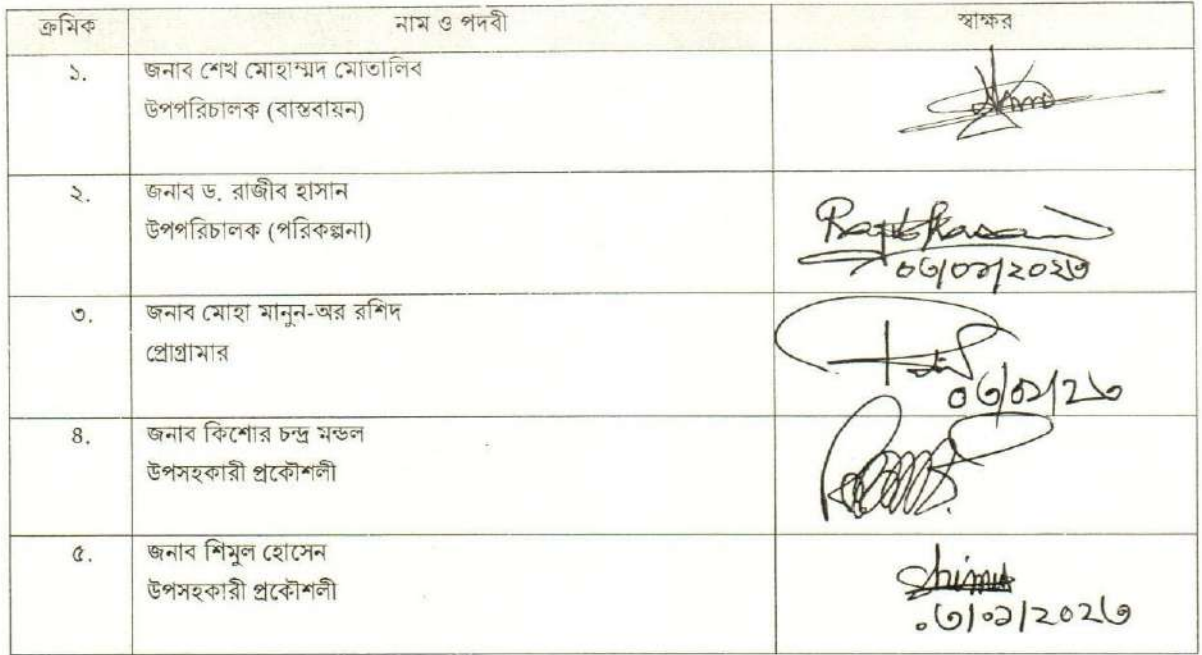 ক্রমিক নাম ও পদবী স্বাক্ষর
১. জনাব শেখ মোহাম্মদ মোতালিব
উপপরিচালক (বাস্তবায়ন)
২. জনাব ড. রাজীব হাসান
উপপরিচালক (পরিকল্পনা)
০৩/০১/২০২৩
৩. জনাব মোহা মানুন-অর রশিদ
প্রোগ্রামার
০৩/০১/২৩
৪. জনাব কিশোর চন্দ্র মন্ডল
উপসহকারী প্রকৌশলী
৫. জনাব শিমুল হোসেন
উপসহকারী প্রকৌশলী
Shimul
০৩/০১/২০২৩